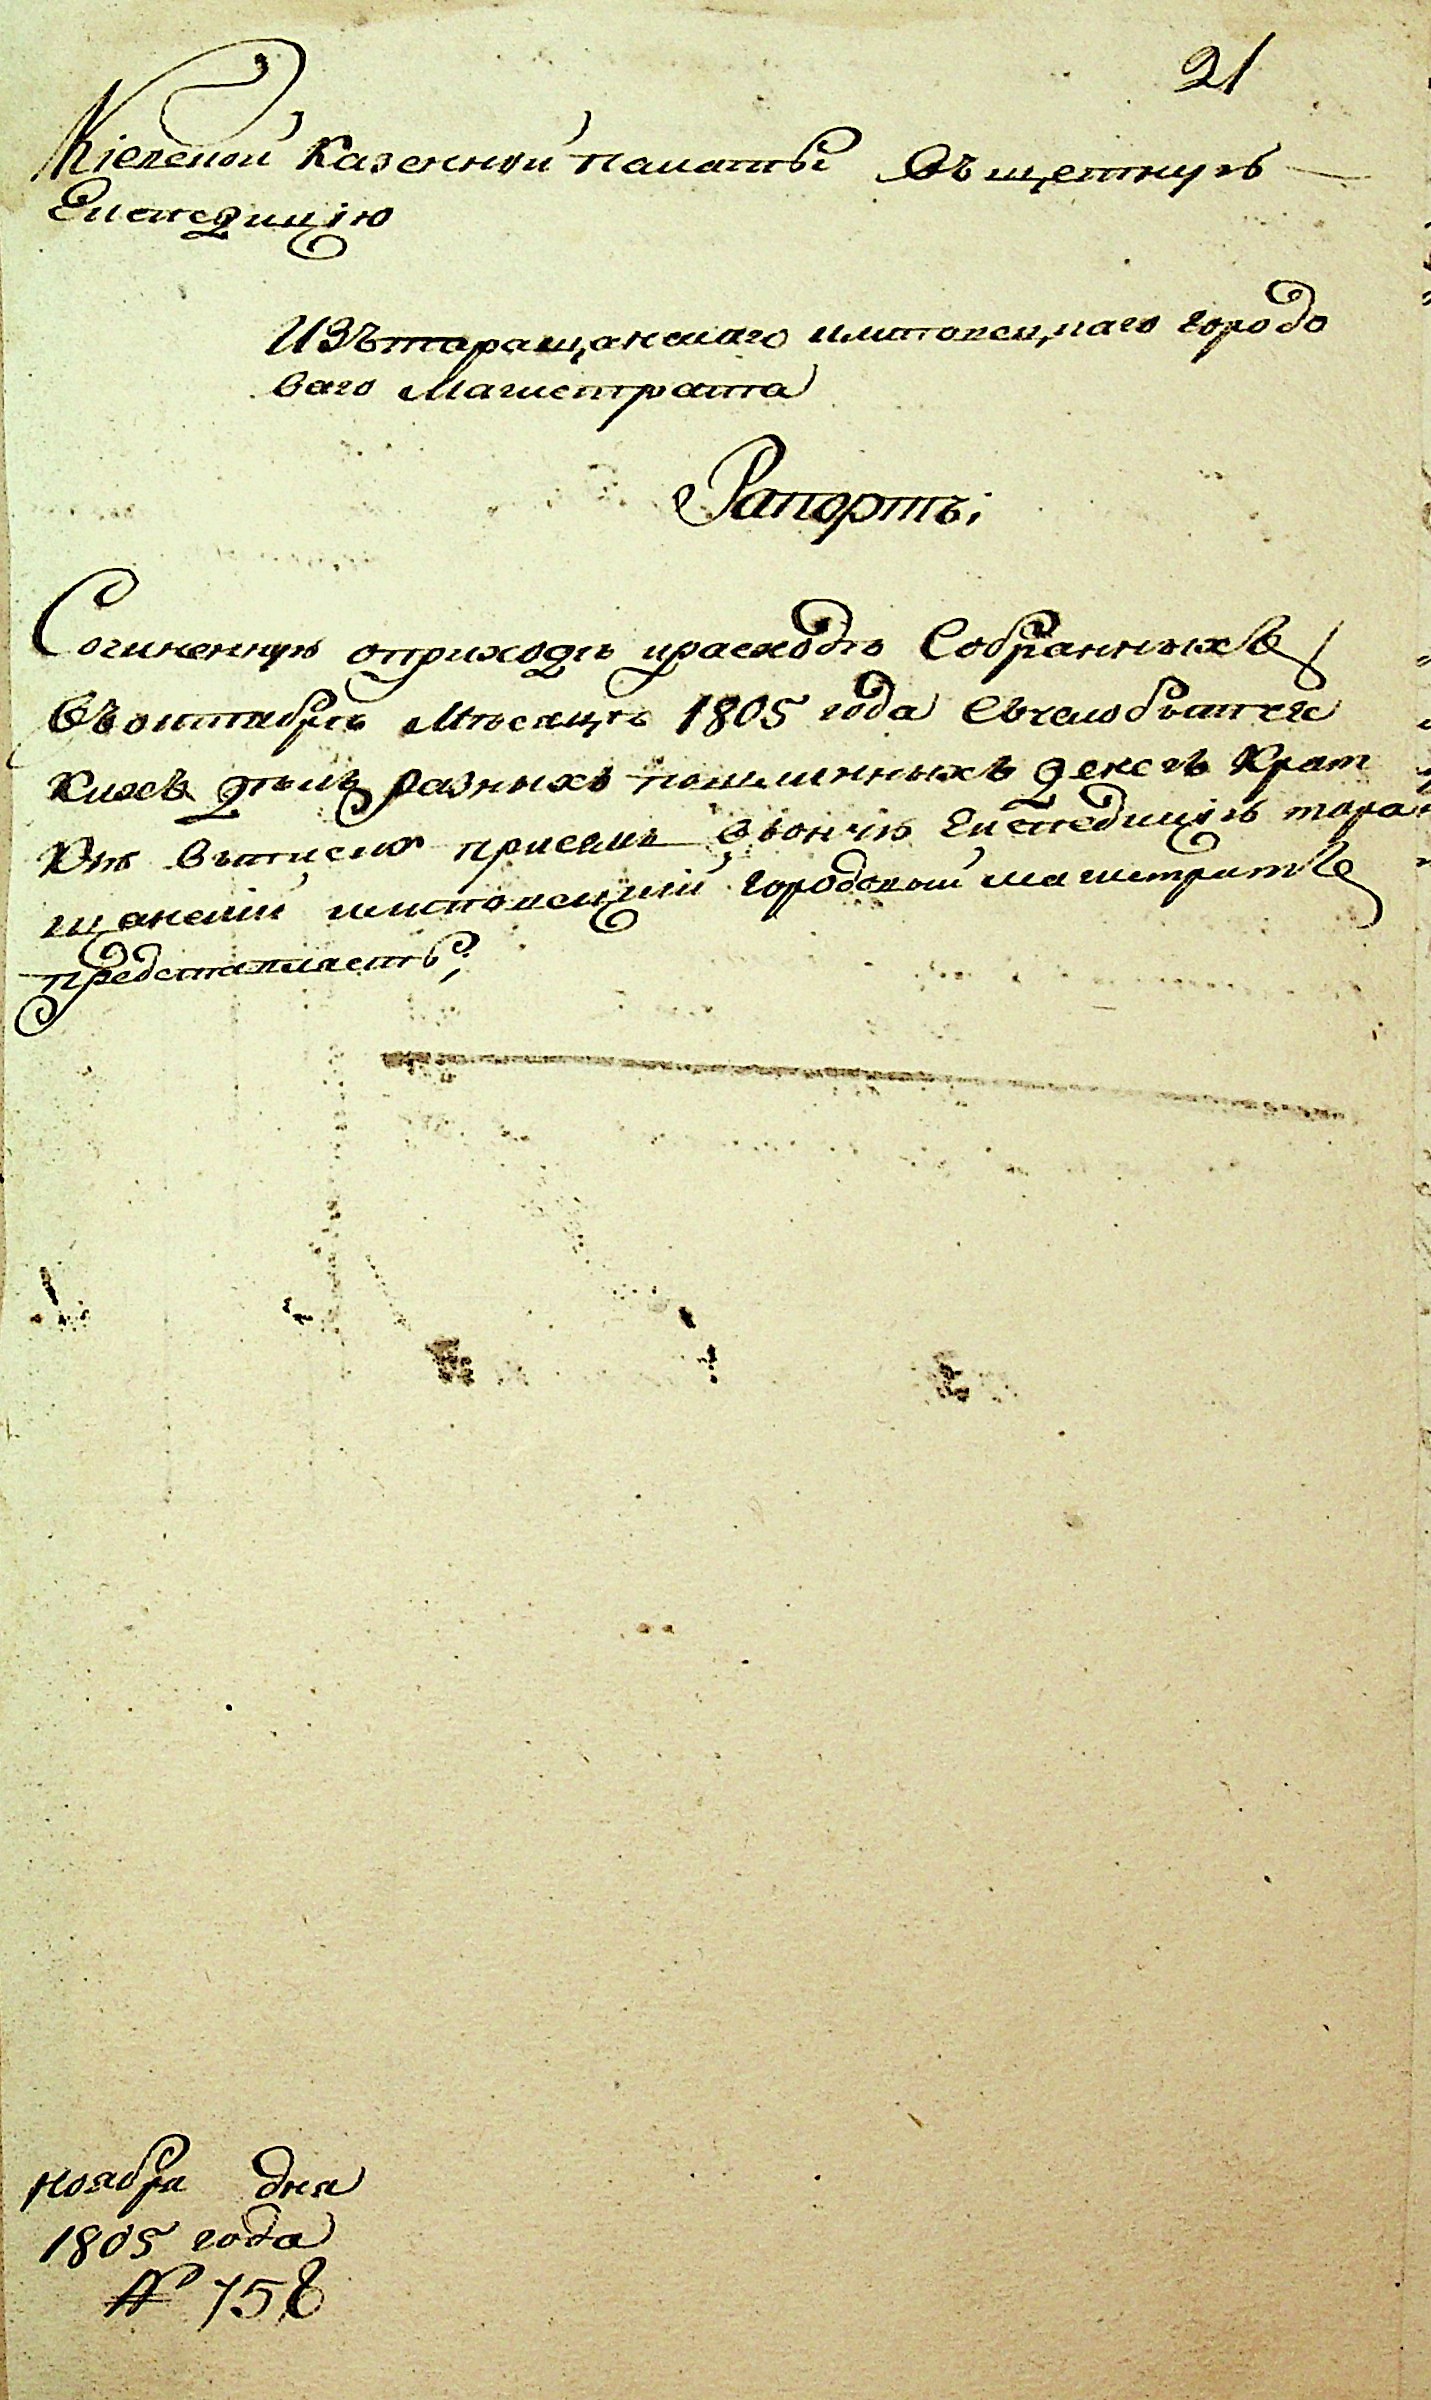 21
Кіевской Казенной палаты Въ щетную
Експедицію
Изъ таращанскаго имяповецкаго городо
ваго Магистрата
Рапортъ;
Сочиненную о приходѣ и расходѣ Собранныхъ
Въ октябрѣ Мѣсяцѣ 1805 года Съ челобытче
Кихъ дѣлъ разныхъ пошлинныхъ денегъ Крат
Кую выписку при семъ въ ону Експедицію тара
щанскій городовый магистратъ
представляетъ;
ноября дня
1805 года
№ 758